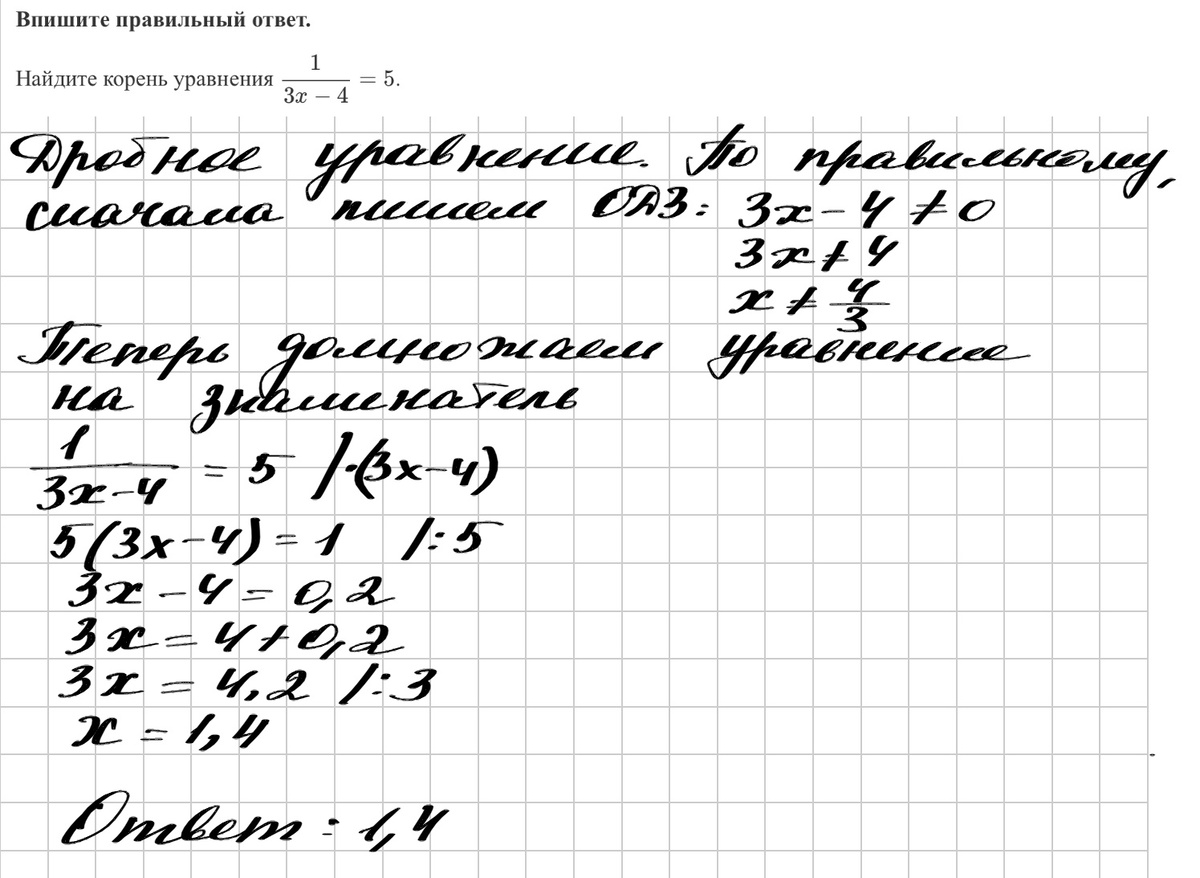 Впишите правильный ответ.
Найдите корень уравнения 1/(3x − 4) = 5.
Дробное уравнение. По правильному,
сначала пишем ОДЗ: 3x − 4 ≠ 0
3x ≠ 4
x ≠ 4/3
Теперь домножаем уравнение
на знаминатель
1/(3x − 4) = 5 /·(3x − 4)
5(3x − 4) = 1 /:5
3x − 4 = 0,2
3x = 4 + 0,2
3x = 4,2 /:3
x = 1,4
Ответ: 1,4